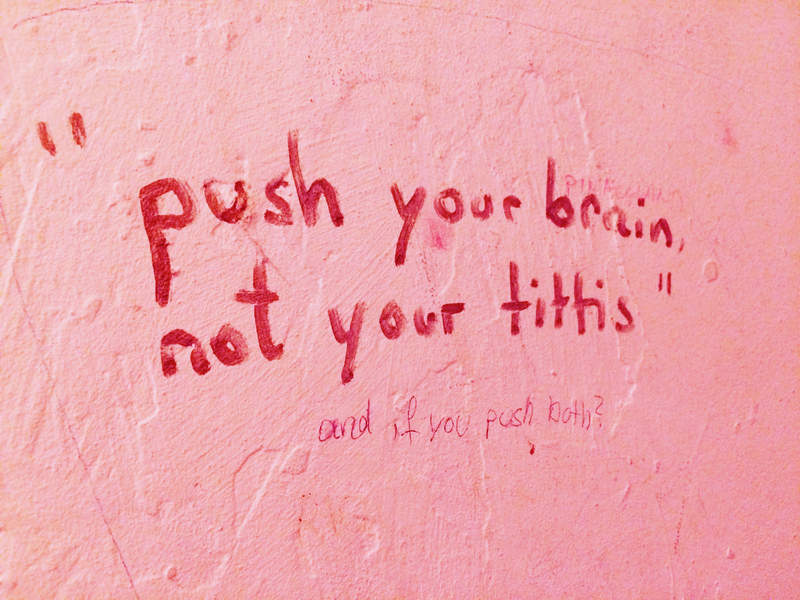 "push your brain,
not your tittis"
and if you push both?